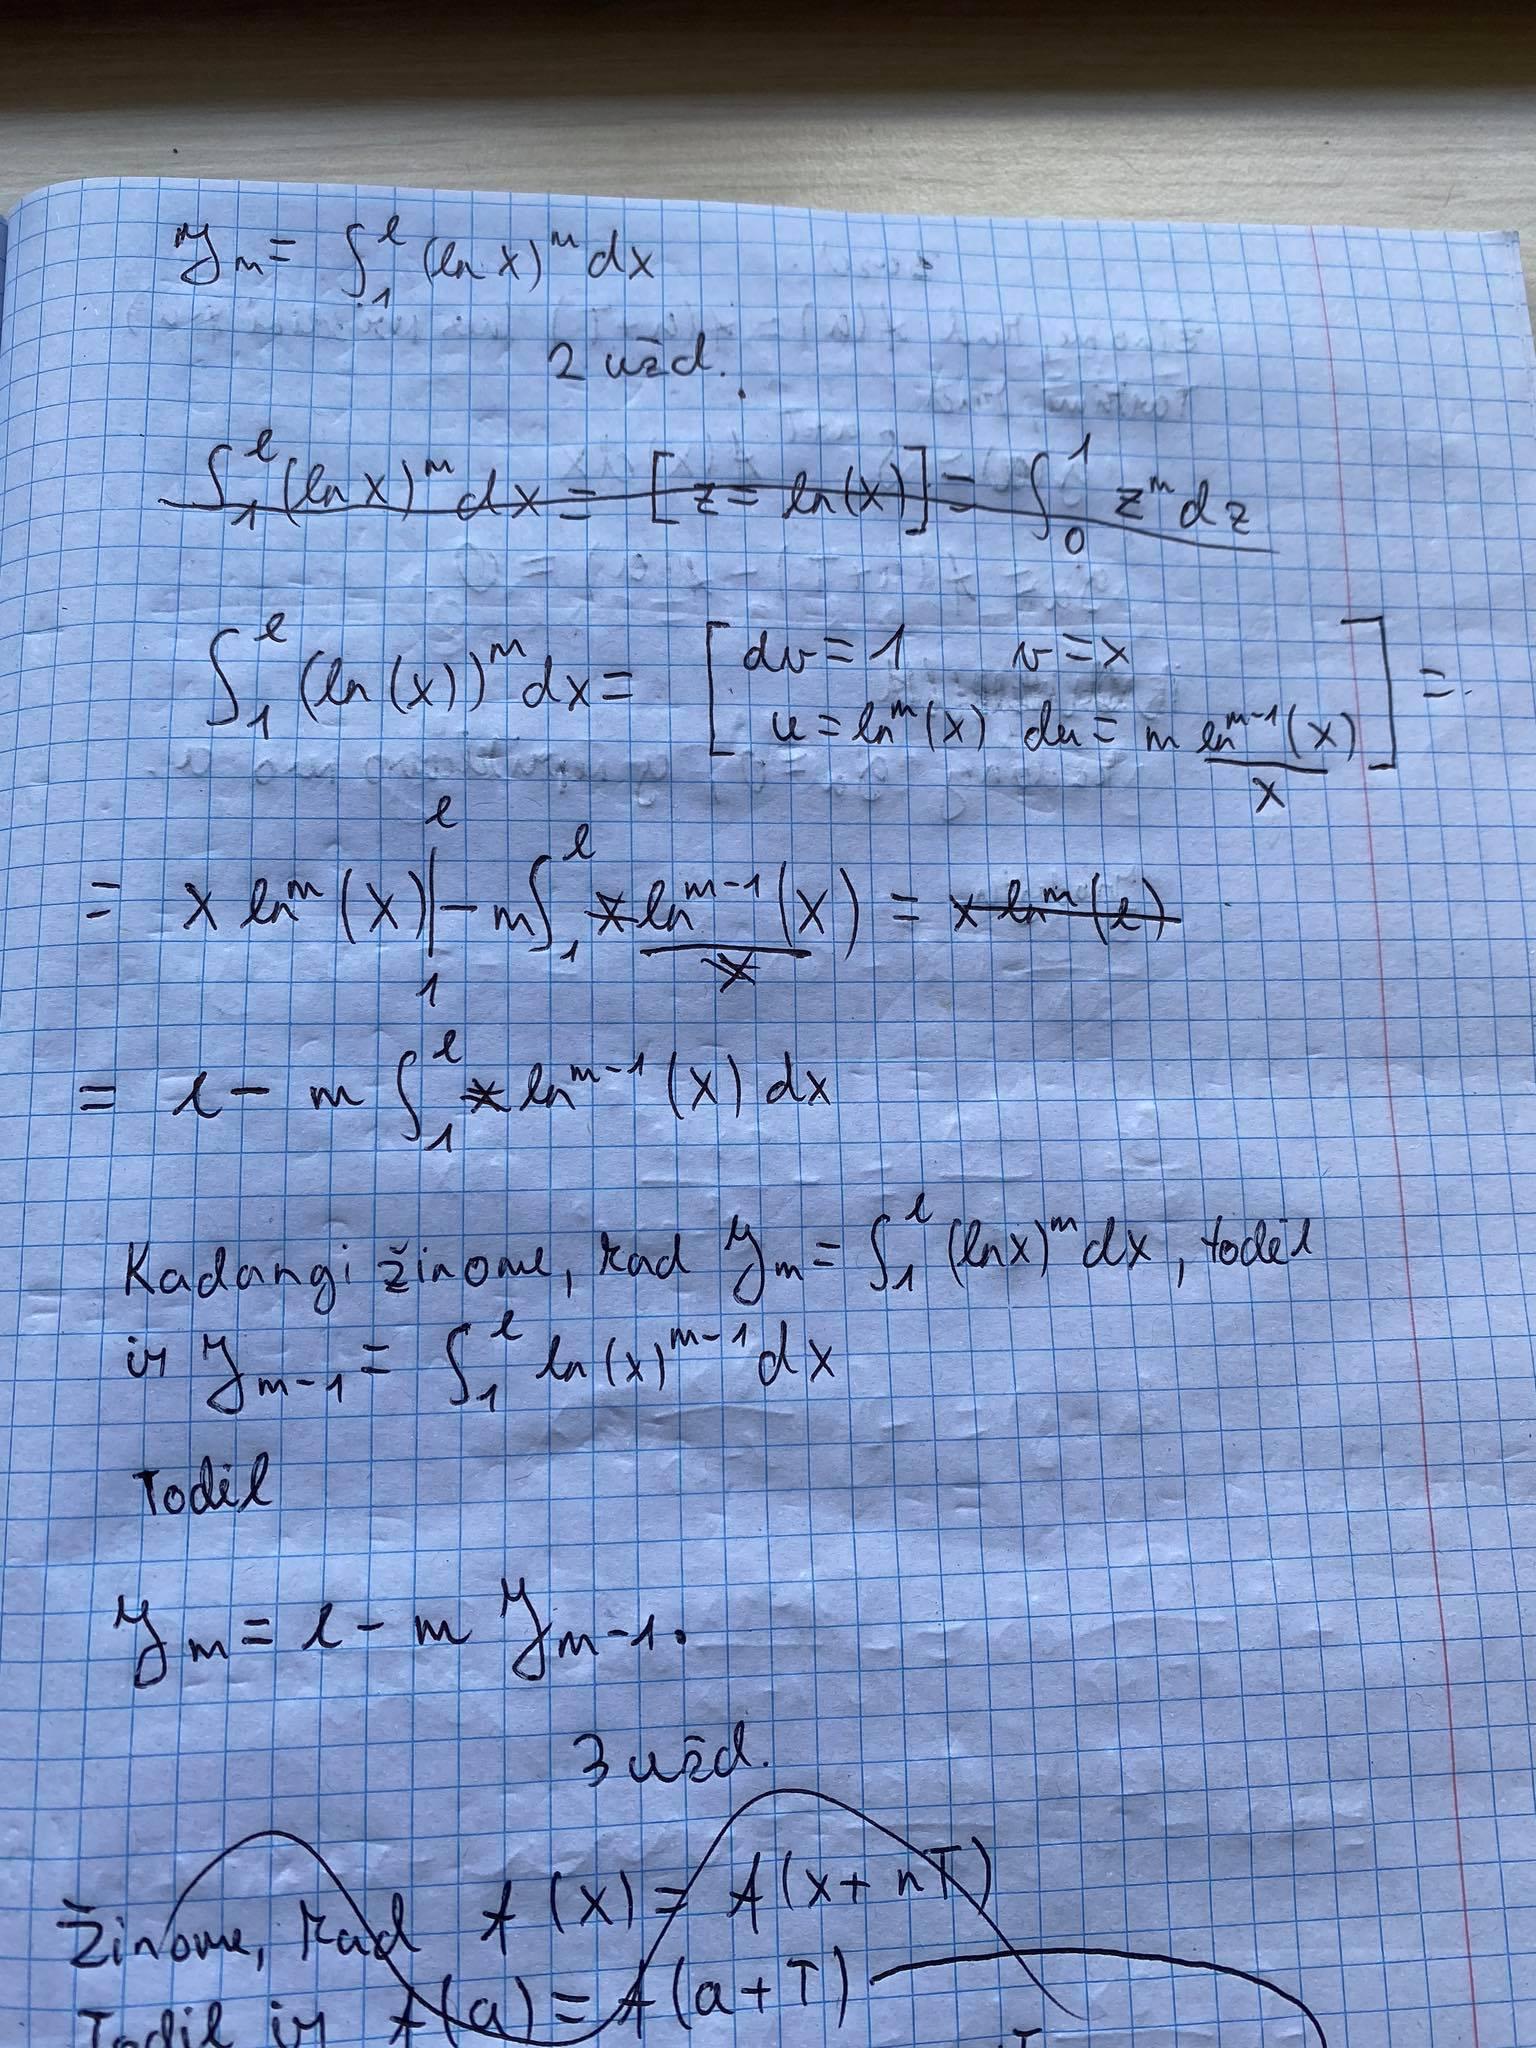 y_m = ∫_1^e (ln x)^m dx
2 užd.
∫_1^e (ln x)^m dx = [z = ln(x)] = ∫_0^1 z^m dz
∫_1^e (ln(x))^m dx = [dv = 1 v = x
u = ln^m(x) du = m ln^{m-1}(x)/x] =
= x ln^m(x)|_1^e - m∫_1^e x ln^{m-1}(x)/x = x ln^m(e)
= e - m ∫_1^e x ln^{m-1}(x) dx
Kadangi žinome, kad y_m = ∫_1^e (lnx)^m dx, todėl
ir y_{m-1} = ∫_1^e ln(x)^{m-1} dx
Todėl
y_m = e - m y_{m-1}.
3 užd.
Žinome, kad f(x) = f(x + nT)
Todėl ir f(a) = f(a + T)